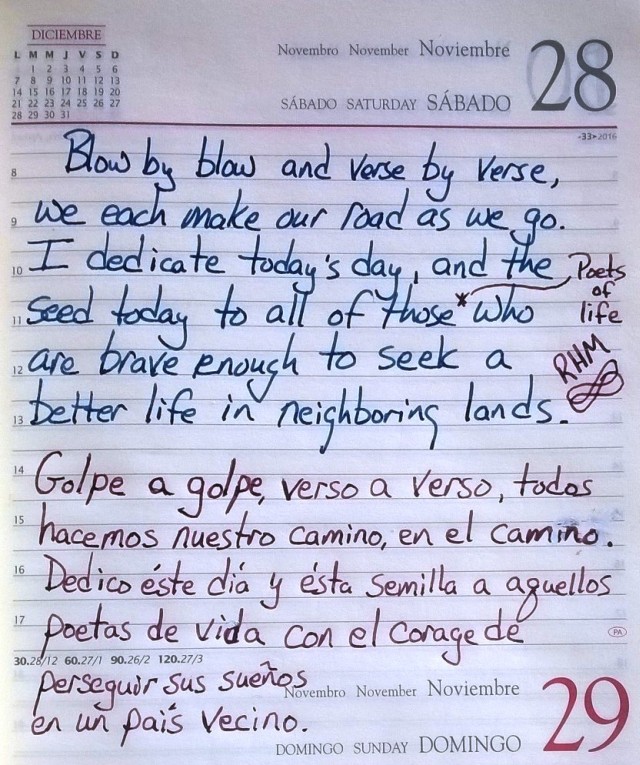 DICIEMBRE
L M M J V S D
1 2 3 4 5 6
7 8 9 10 11 12 13
14 15 16 17 18 19 20
21 22 23 24 25 26 27
28 29 30 31
Novembro November Noviembre
SÁBADO SATURDAY SÁBADO
28
-33>2016
8 Blow by blow and verse by verse,
9 we each make our road as we go.
10 I dedicate today's day, and the
11 seed today to all of those* who
*Poets
of
life
12 are brave enough to seek a
13 better life in neighboring lands.
RHM
14 Golpe a golpe, verso a verso, todos
15 hacemos nuestro camino, en el camino.
16 Dedico éste diá y ésta semilla a aquellos
17 poetas de vida con el corage de
PA
30.28/12 60.27/1 90.26/2 120.27/3
perseguir sus sueños
en un país vecino.
Novembro November Noviembre
DOMINGO SUNDAY DOMINGO
29